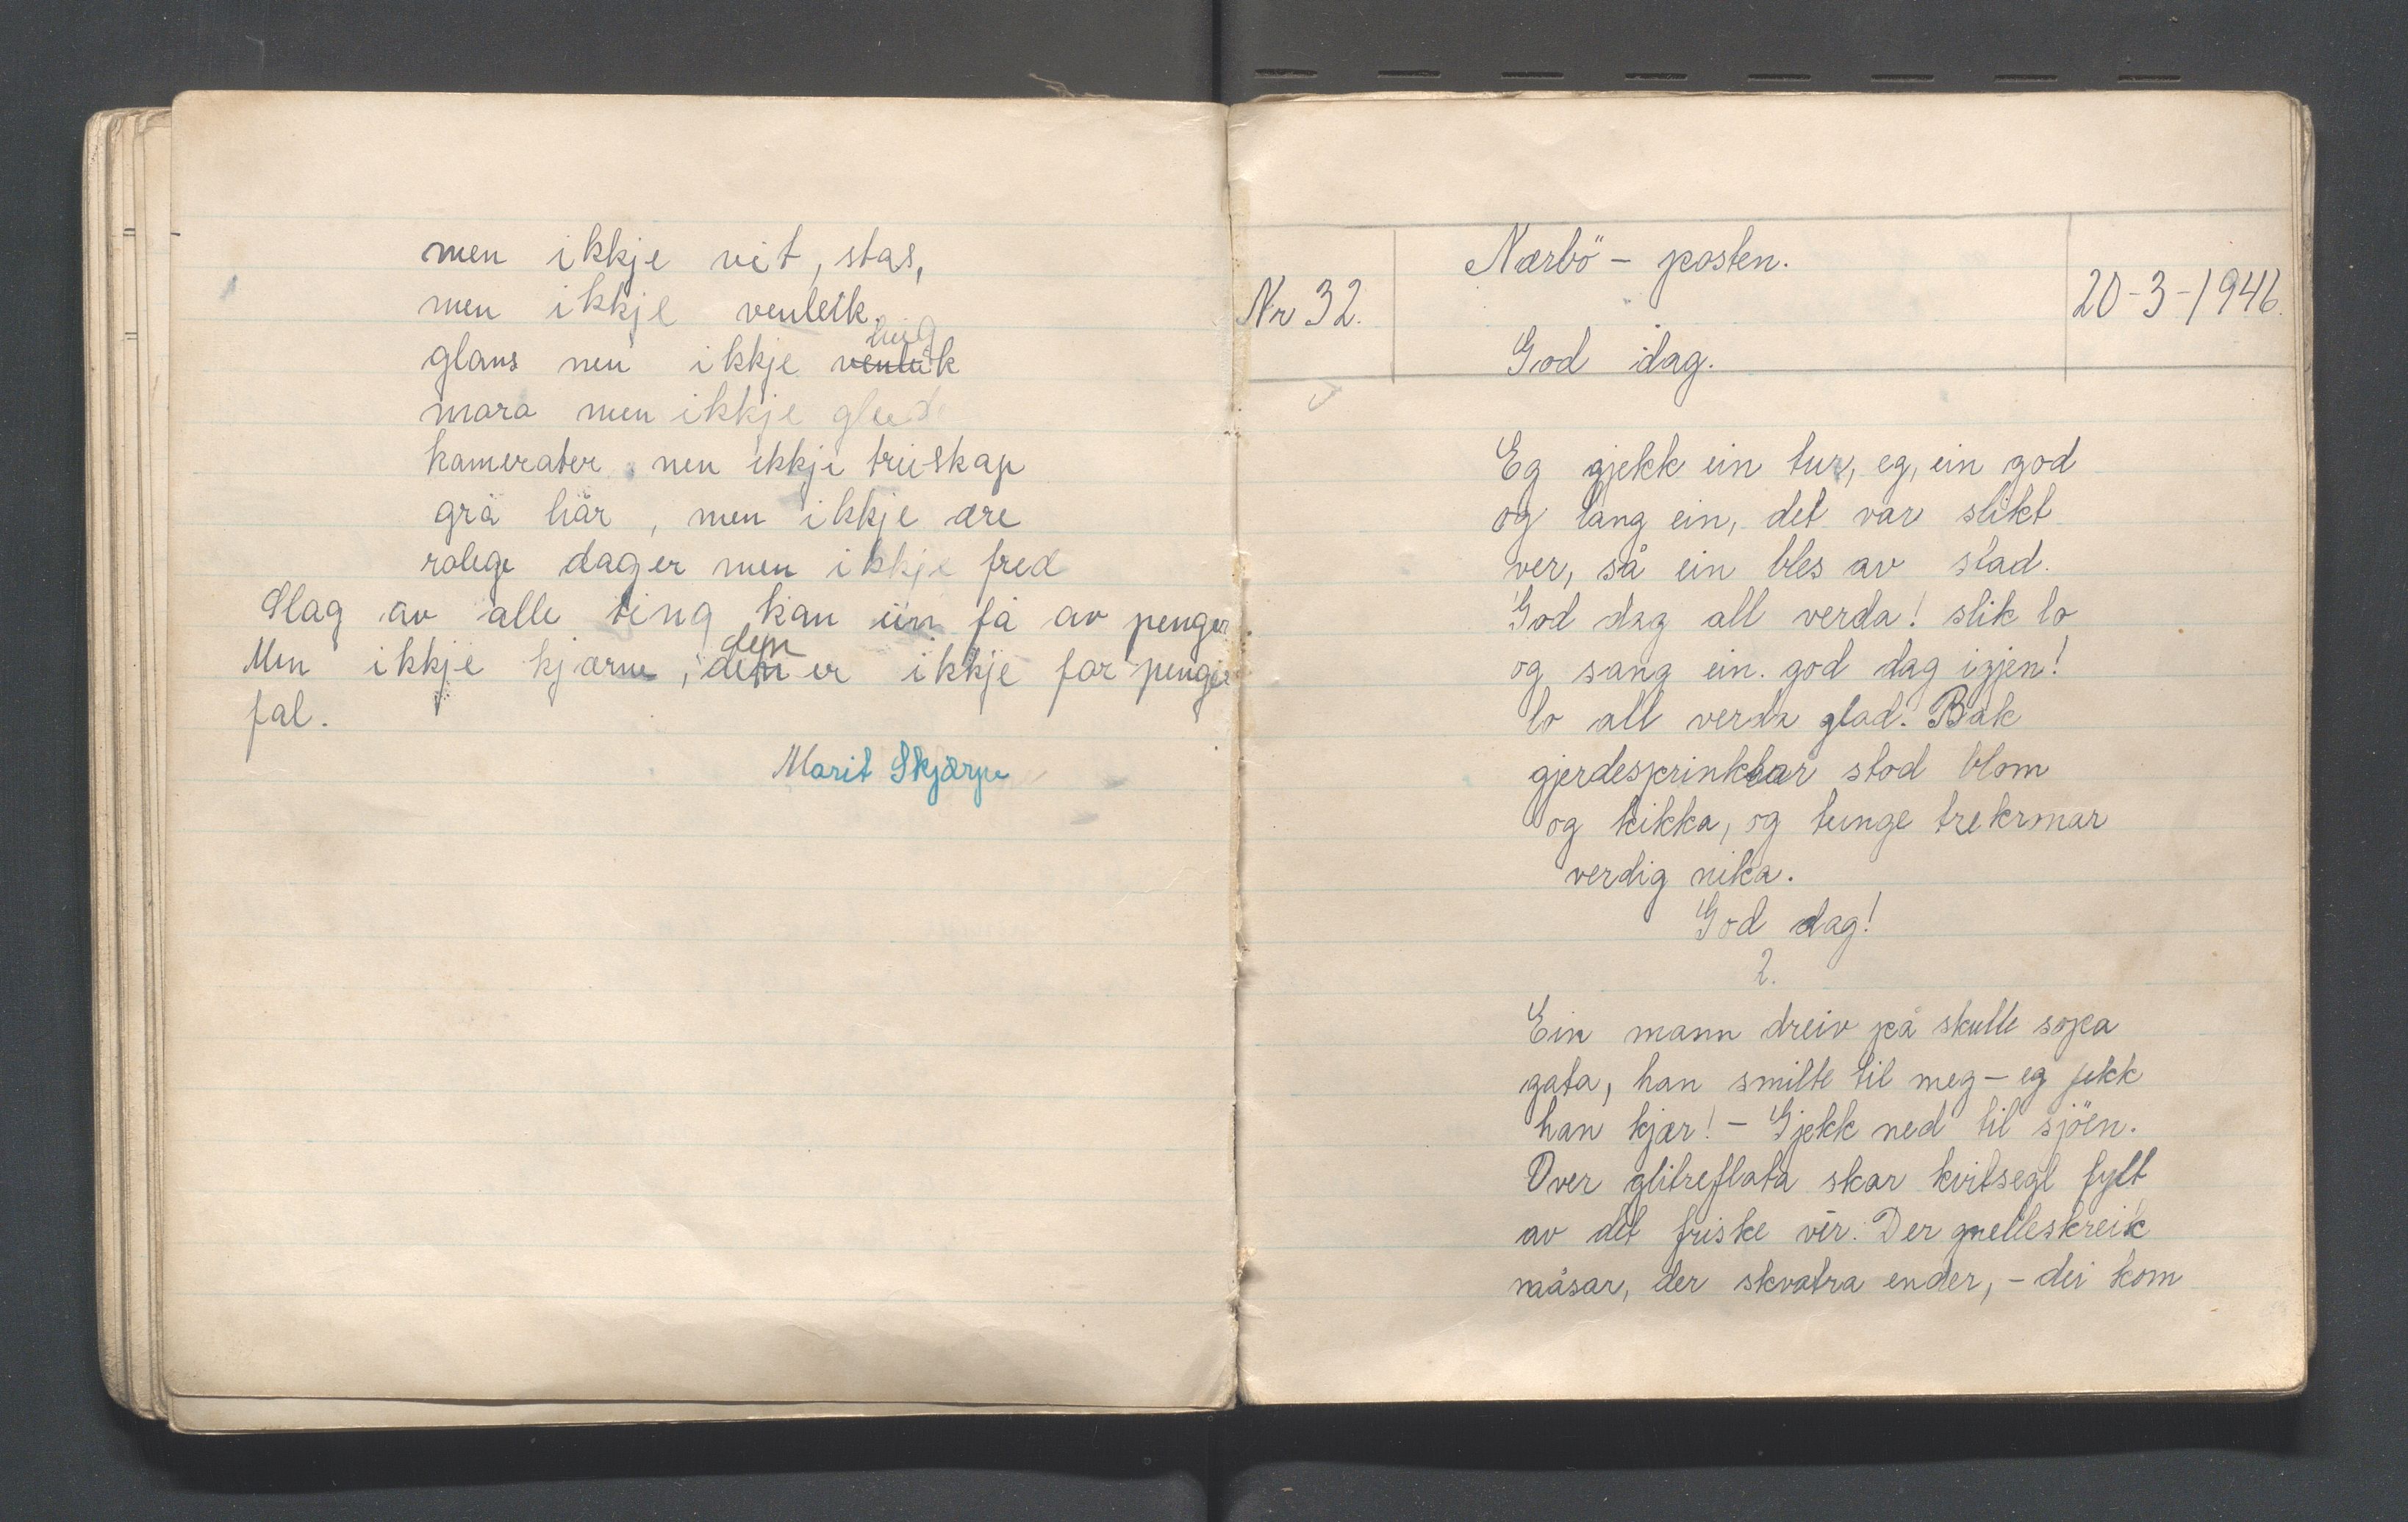 men ikkje vit, stas,
men ikkje venleik.
hug
glans men ikkje venleik
mora men ikkje glede
kamerater men ikkje truskap
grå hår, men ikkje ære
rolege dager men ikkje fred
Slag av alle ting kan ein få av penger
dem
Men ikkje kjærne, dem er ikkje for penger
fal.
Marit Skjærpe
Nr 32.
Nærbö - posten.
20-3-1946.
God idag.
Eg gjekk ein tur, eg, ein god
og lang ein, det var slikt
ver, så ein bles av stad.
God dag all verda! slik lo
og sang ein. god dag igjen!
lo all verda glad. Bak
gjerdesprinklar stod blom
og kikka, og tunge trekrmar
verdig nika.
God dag!
2.
Ein mann dreiv på skulle sopa
gata, han smilte til meg - eg fekk
han kjær! - Gjekk ned til sjöen.
Over glitreflata skar kvitsegl fyllt
av det friske vér. Der gnelleskreik
måsar, der skvatra ender, - dei kom